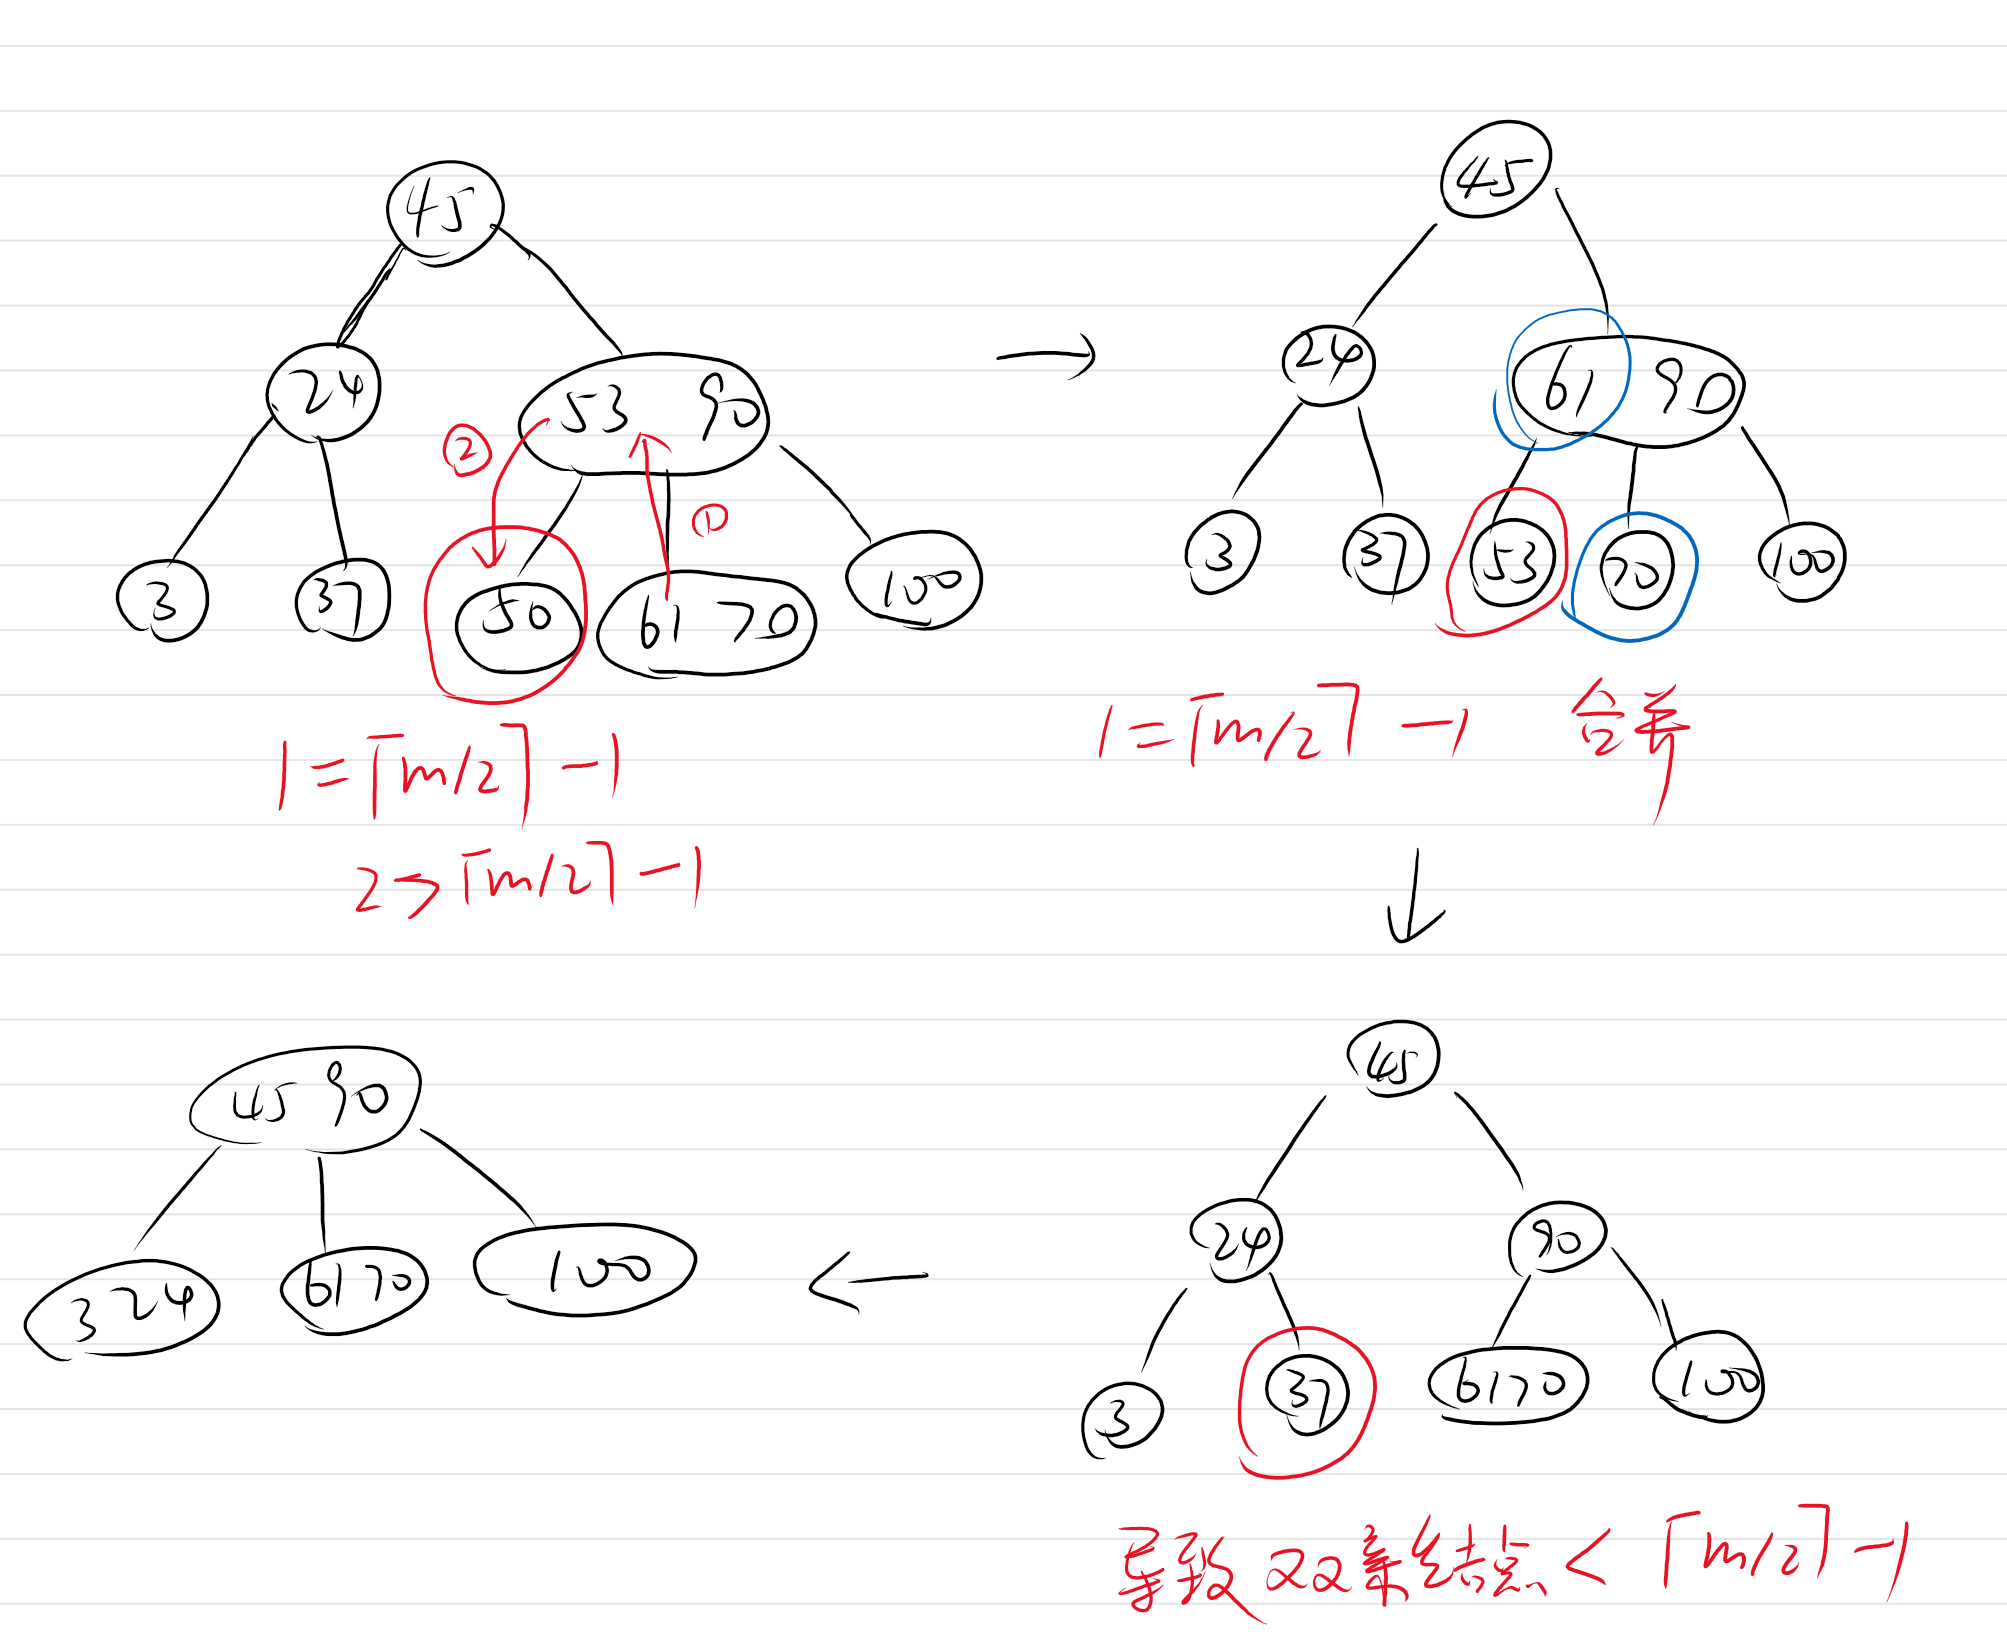 45
24
53 90
②
①
3
37
50
61 70
100
1=⌈m/2⌉-1
2>⌈m/2⌉-1
45
24
61 90
3
37
53
70
100
1=⌈m/2⌉-1 合并
45
24
90
3
37
61 70
100
导致双亲结点<⌈m/2⌉-1
45 90
3 24
61 70
100